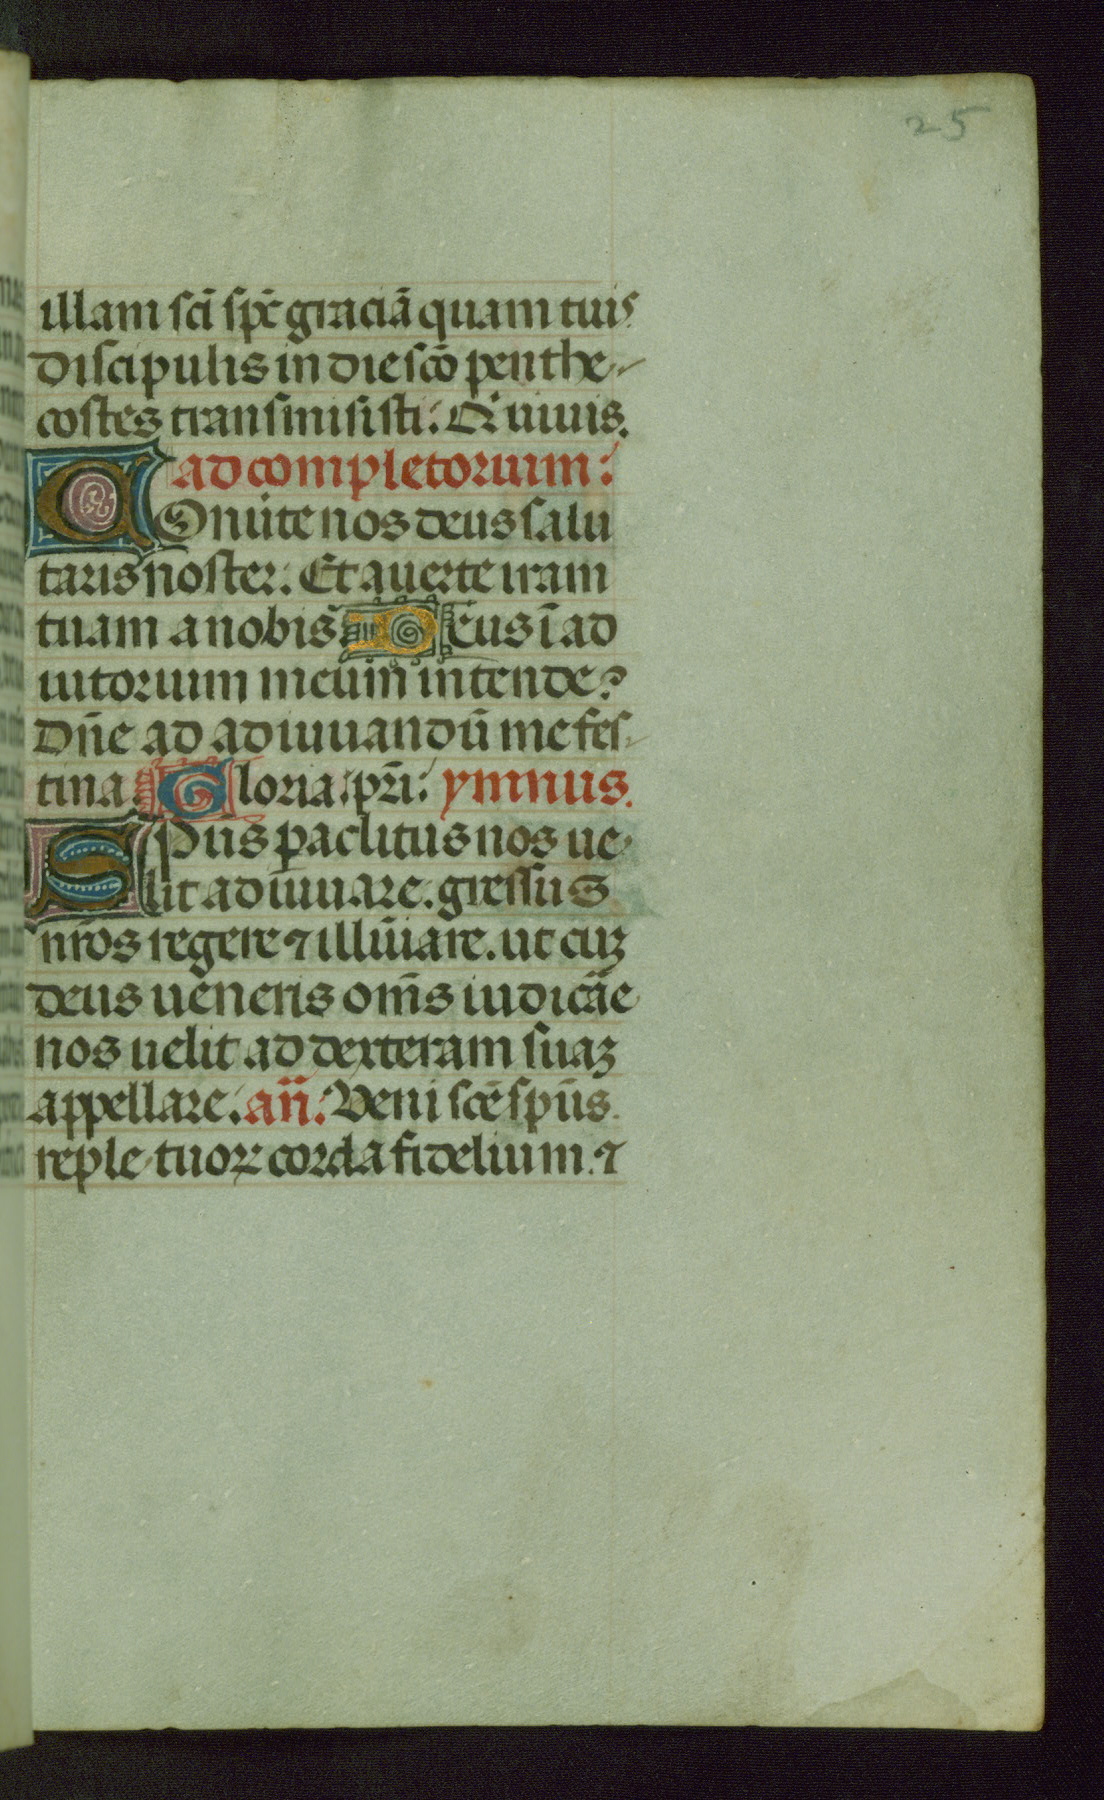 25
illam sci spc graciā quam tuis
discipulis in die sco penthe-
costes transmisisti: Qui uiuis.
ad completorium:
Conūte nos deus salu
taris noster. Et auerte iram
tuam a nobis Deus ī ad
iutorium meum intende?
Dn̄e ad adiuuandū me fes-
tina. Gloria pr̄i: ymnus.
Spūs paclitus nos ue-
lit adiuuare. gressus
nr̄os regere ⁊ illūiare. ut cuꝫ
deus ueneris om̄s iudicāe
nos uelit ad dexteram suaꝫ
appellare. an̄: Veni sce spūs.
reple tuoꝝ corda fidelium. ⁊